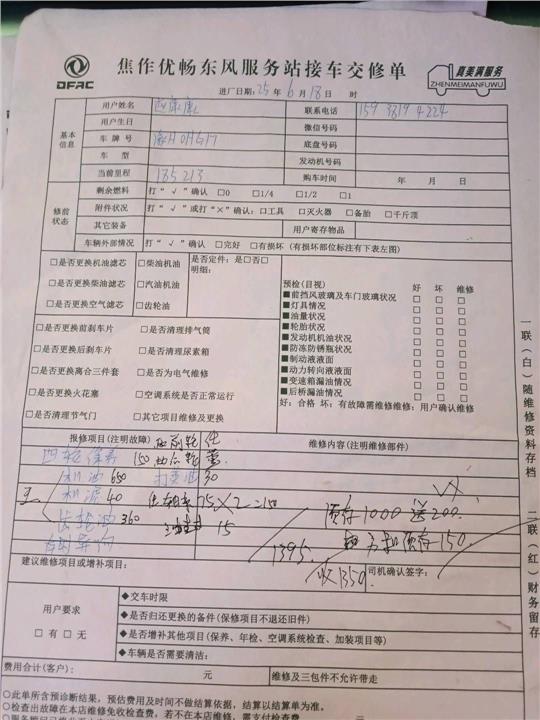 DFAC
焦作优畅东风服务站接车交修单
真美满服务
ZHENMEIMANFUWU
进厂日期: 25 年 6 月 18 日 时
基本信息
用户姓名
联系电话
用户生日
微信号码
车牌号
底盘号码
车型
发动机号码
当前里程 135213
购车时间 年 月 日
修前状态
剩余燃料 打“√”确认 □0 □1/4 □1/2 □1
附件状况 打“√”或打“×”确认:□工具 □灭火器 □备胎 □千斤顶
其它装备 用户寄存物品
车辆外部情况 打“√”确认 □完好 □有损坏 (有损坏部位标注有下表左图)
□是否更换机油滤芯 □柴油机油 是否定件: 是□否□
明细:
□是否更换柴油滤芯 □汽油机油
□是否更换空气滤芯 □齿轮油
预检(目视) 好 坏 维修
■前挡风玻璃及车门玻璃状况 □ □ □
■灯具情况 □ □ □
■油量状况 □ □ □
■轮胎状况 □ □ □
■发动机机油状况 □ □ □
■防冻防锈瓶状况 □ □ □
■制动液液面 □ □ □
■动力转向液液面 □ □ □
■变速箱漏油情况 □ □ □
■后桥漏油情况 □ □ □
好: 合格 坏: 有故障需维修维修: 用户确认维修
□是否更换前刹车片 □是否清理排气筒
□是否更换后刹车片 □是否清理尿素箱
□是否更换离合三件套 □是否为电气维修
□是否更换火花塞 □空调系统是否正常运行
□是否清理节气门 □其它项目维修及更换
报修项目(注明故障)
维修内容(注明维修部件)
四轮保养 150
机油 650 打黄油 30
机滤 40 75×2=150
齿轮油 360 15
债存1000 送200.
150.
1395.
收1350
司机确认签字:
建议维修项目或增补项目:
用户要求
□有□无
◆交车时限
◆是否归还更换的备件(保修项目不退还旧件)
◆是否增补其他项目(保养、年检、空调系统检查、加装项目等)
◆车辆是否需要清洁:
费用合计(客户): 元 维修及三包件不允许带走
○此单所含预诊断结果, 预估费用及时间不做结算依据, 结算以结算单为准。
○检查出故障在本店维修免收检查费, 若不在本店维修, 需支付检查费
一联(白)随维修资料存档
二联(红)财务留存